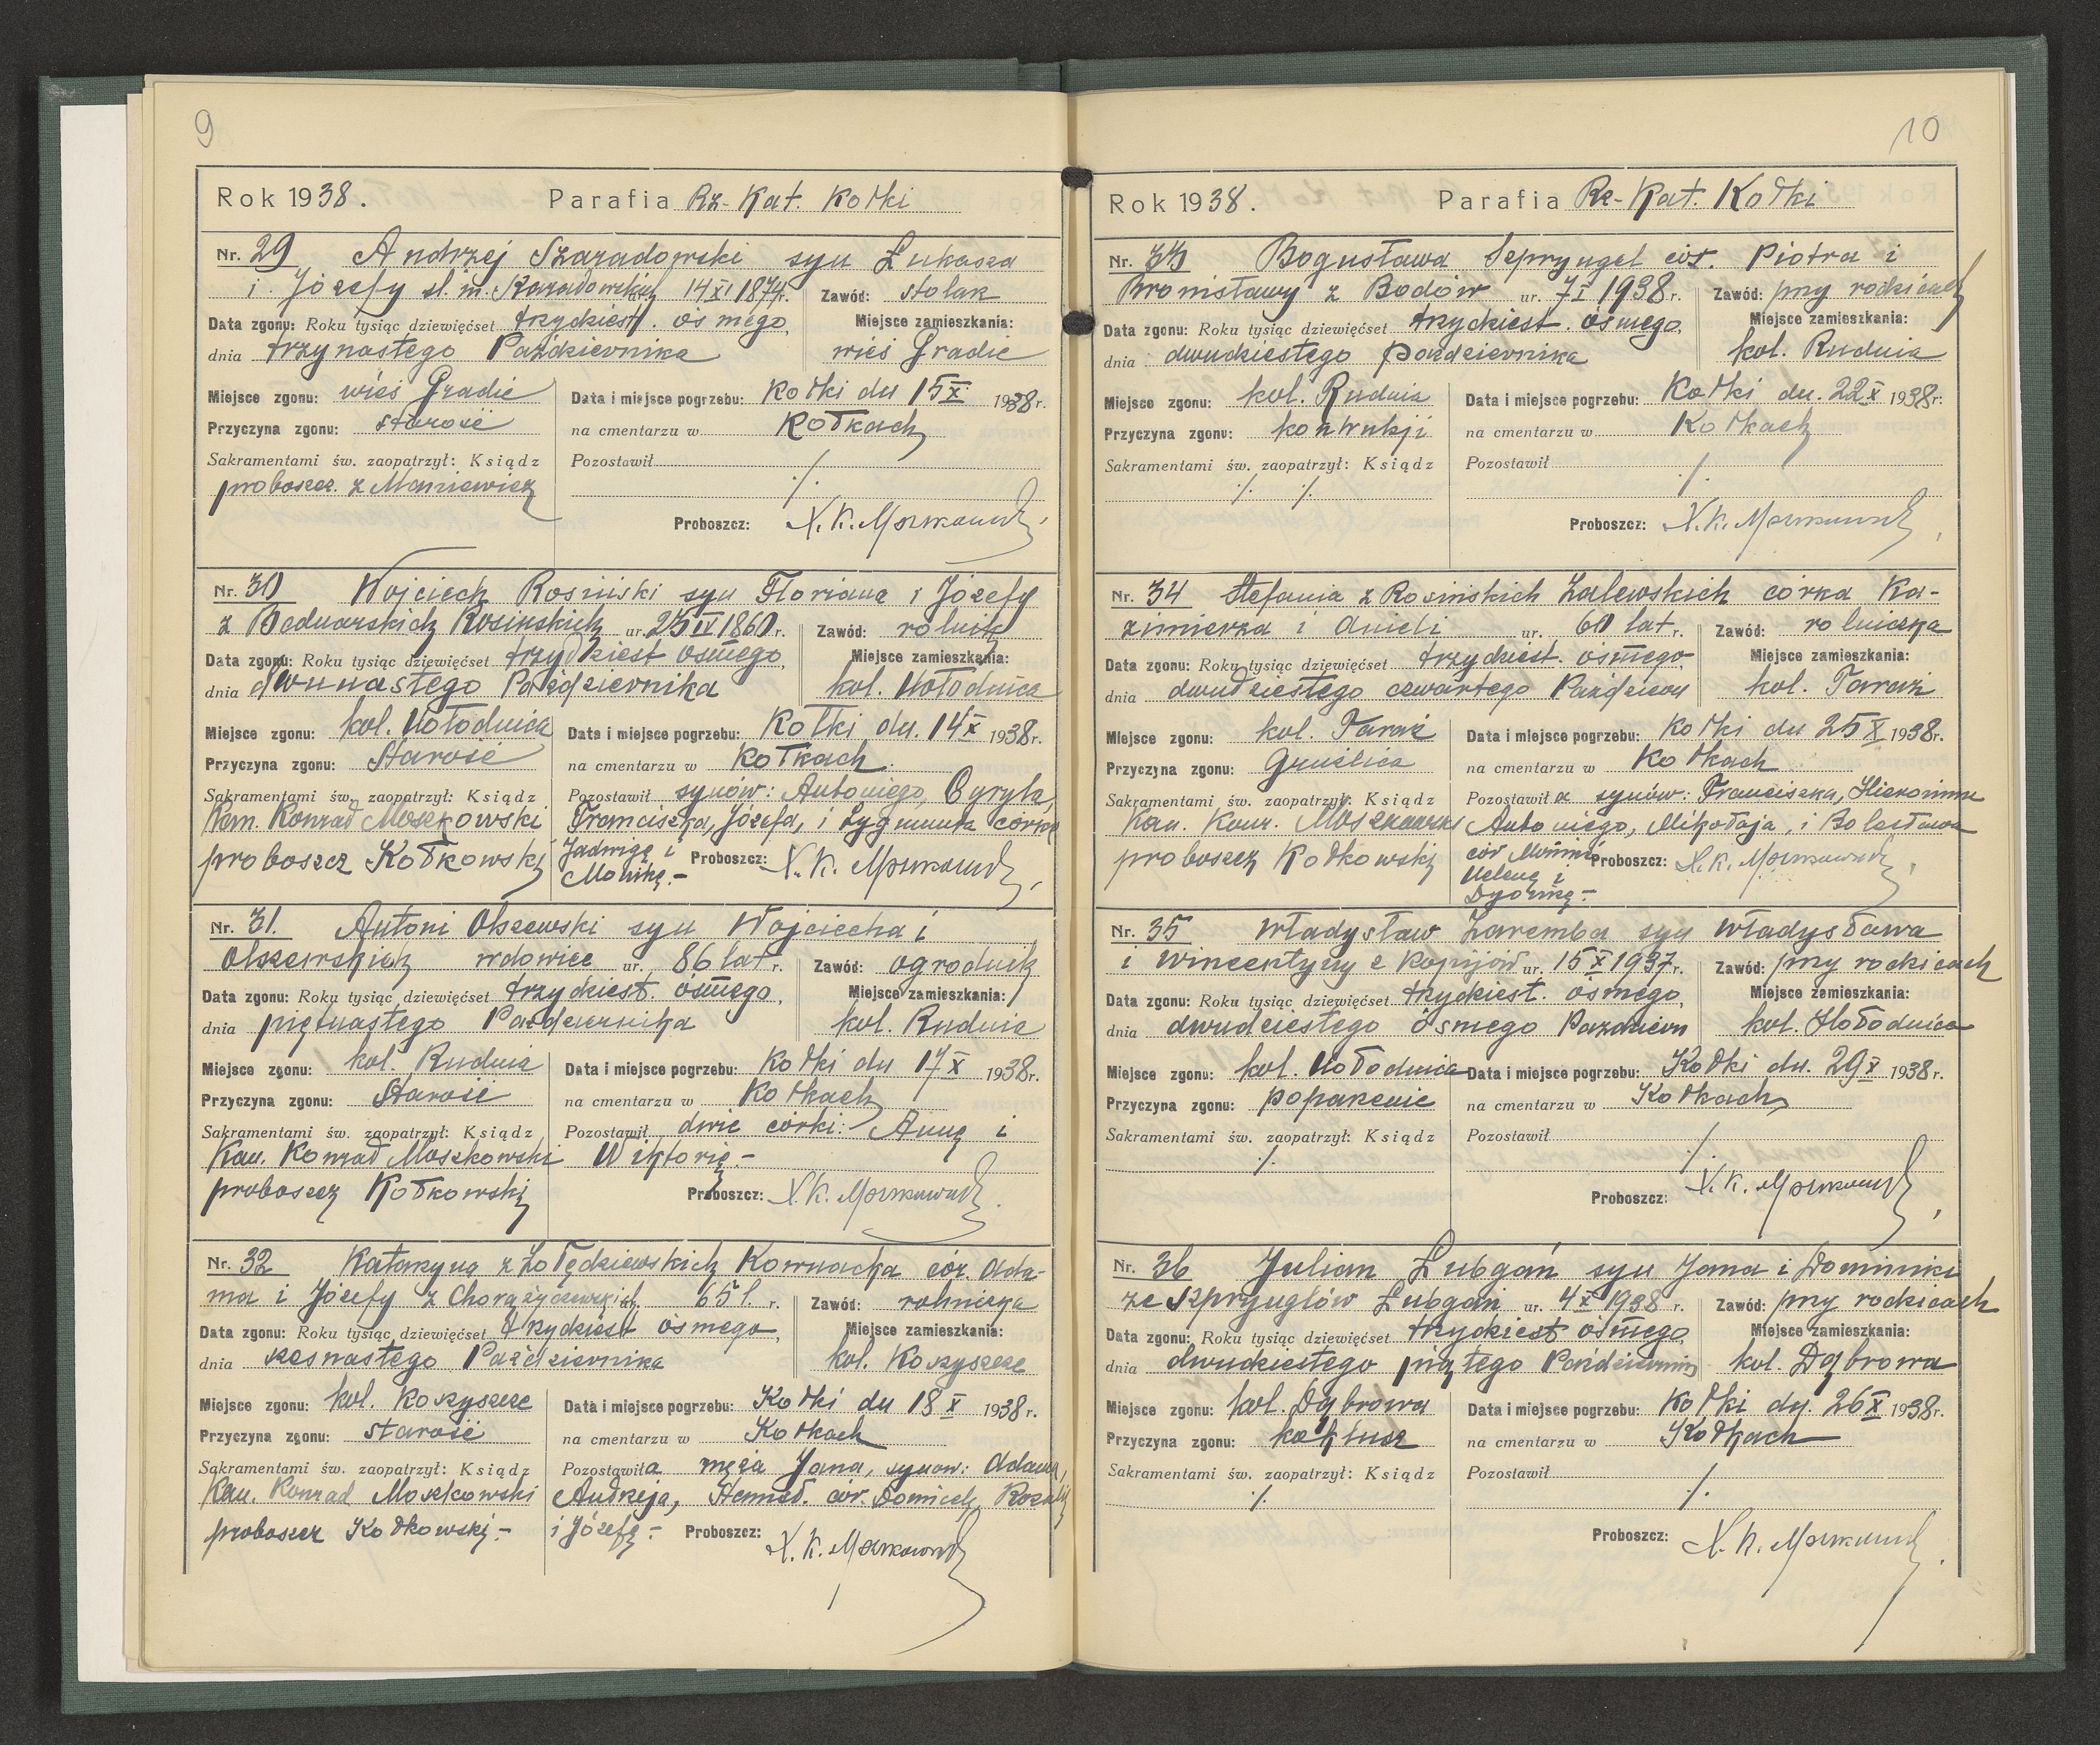 9
Rok 1938. Parafia Rz-Kat. Kołki
Nr. 29 Andrzej Szaradowski syn Łukasza
i Józefy sł. m. 14 XI 1874 r. Zawód: stolarz
Data zgonu: Roku tysiąc dziewięćset trzydziest. ósmego, Miejsce zamieszkania:
dnia trzynastego Października wieś Gradie
Miejsce zgonu: wieś Gradie Data i miejsce pogrzebu: Kołki dn 15 X 1938 r.
Przyczyna zgonu: starość na cmentarzu w Kołkach
Sakramentami św. zaopatrzył: Ksiądz Pozostawił
proboszcz. z Maniewicz ·/.
Proboszcz: X. K. Moszkowski
Nr. 30 Wojciech Rosiński syn Floriana i Józefy
z Bednarskich Rosińskich ur. 25 IV 1860 r. Zawód: rolnik
Data zgonu: Roku tysiąc dziewięćset trzydziest ósmego, Miejsce zamieszkania:
dnia dwunastego Października kol. Hołodnica
Miejsce zgonu: kol. Hołodnica Data i miejsce pogrzebu: Kołki dn. 14 X 1938 r.
Przyczyna zgonu: Starość na cmentarzu w Kołkach.
Sakramentami św. zaopatrzył: Ksiądz Pozostawił synów: Antoniego, Cyryla,
Kan. Konrad Moszkowski Franciszka, Józefa, i Zygmunta córkę
proboszcz Kołkowski Jadwigę i Proboszcz: X. K. Moszkowski
Monikę.-
Nr. 31. Antoni Olszewski syn Wojciecha i
Olszewskich wdowiec ur. 86 lat r. Zawód: ogrodnik
Data zgonu: Roku tysiąc dziewięćset trzydziest. ósmego, Miejsce zamieszkania:
dnia piętnastego Października kol. Rudnia
Miejsce zgonu: kol. Rudnia Data i miejsce pogrzebu: Kołki dn 17 X 1938 r.
Przyczyna zgonu: Starość na cmentarzu w Kołkach
Sakramentami św. zaopatrzył: Ksiądz Pozostawił dwie córki: Annę i
Kan. Konrad Moszkowski Wiktorię.-
proboszcz Kołkowski Proboszcz: X. K. Moszkowski
Nr. 32 Katarzyna z Żołędziewskich Kornacka cór. Ada-
ma i Józefy z 65 l. r. Zawód: rolniczka
Data zgonu: Roku tysiąc dziewięćset trzydziest ósmego, Miejsce zamieszkania:
dnia szesnastego Października kol. Kozyszcze
Miejsce zgonu: kol. Kozyszcze Data i miejsce pogrzebu: Kołki dn 18 X 1938 r.
Przyczyna zgonu: starość na cmentarzu w Kołkach
Sakramentami św. zaopatrzył: Ksiądz Pozostawiła męża Jana, synów: Adama,
Kan. Konrad Moszkowski Andrzeja, Stanisł. cór. Domicelę, Rozalię
proboszcz Kołkowski.- i Józefę.- Proboszcz: X. K. Moszkowski
10
Rok 1938. Parafia Rz-Kat. Kołki
Nr. 33 Bogusława Szpryngel cór. Piotra i
Bronisławy z Bodów ur. 7 I 1938 r. Zawód: przy rodzicach
Data zgonu: Roku tysiąc dziewięćset trzydziest. ósmego, Miejsce zamieszkania:
dnia dwudziestego października kol. Rudnia
Miejsce zgonu: kol. Rudnia Data i miejsce pogrzebu: Kołki dn. 22 X 1938 r.
Przyczyna zgonu: na cmentarzu w Kołkach
Sakramentami św. zaopatrzył: Ksiądz Pozostawił
·/. ·/. ·/.
Proboszcz: X. K. Moszkowski
Nr. 34 Stefania z Rosińskich Zalewskich córka Ka-
zimierza i Anieli ur. 60 lat r. Zawód: rolniczka
Data zgonu: Roku tysiąc dziewięćset trzydziest. ósmego. Miejsce zamieszkania:
dnia dwudziestego czwartego Paździer kol. Taraż
Miejsce zgonu: kol. Taraż Data i miejsce pogrzebu: Kołki dn 25 X 1938 r.
Przyczyna zgonu: Gruźlica na cmentarzu w Kołkach
Sakramentami św. zaopatrzył: Ksiądz Pozostawiła synów: Franciszka, Hieronima
Kan. Konr. Moszkowski Antoniego, Mikołaja, i Bolesława
proboszcz Kołkowski cór Proboszcz: X. K. Moszkowski
Helenę i
Nr. 35 Władysław Zaremba syn Władysława
i Wincentyny z Kopijów ur. 15 X 1937 r. Zawód: przy rodzicach
Data zgonu: Roku tysiąc dziewięćset trzydziest. ósmego, Miejsce zamieszkania:
dnia dwudziestego ósmego Paździer kol. Hołodnica
Miejsce zgonu: kol. Hołodnica Data i miejsce pogrzebu: Kołki dn. 29 X 1938 r.
Przyczyna zgonu: poparzenie na cmentarzu w Kołkach
Sakramentami św. zaopatrzył: Ksiądz Pozostawił
·/. ·/.
Proboszcz: X. K. Moszkowski
Nr. 36 Julian Łubgań syn Jana i Dominiki
ze Szprynglów Łubgań ur. 4 X 1938 r. Zawód: przy rodzicach
Data zgonu: Roku tysiąc dziewięćset trzydziest ósmego, Miejsce zamieszkania:
dnia dwudziestego piątego Października kol. Dąbrowa
Miejsce zgonu: kol. Dąbrowa Data i miejsce pogrzebu: Kołki dn. 26 X 1938 r.
Przyczyna zgonu: koklusz na cmentarzu w Kołkach
Sakramentami św. zaopatrzył: Ksiądz Pozostawił
·/. ·/.
Proboszcz: X. K. Moszkowski